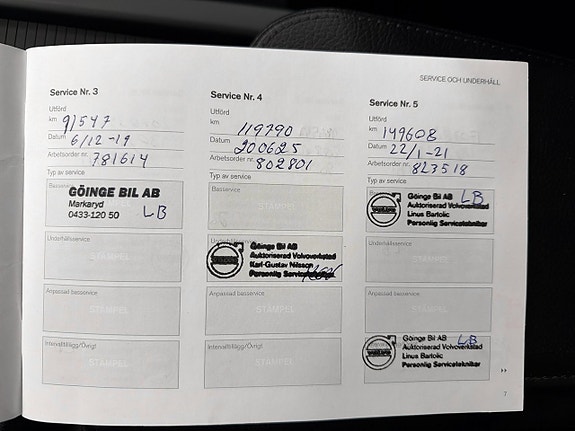 SERVICE OCH UNDERHÅLL
Service Nr. 3
Utförd
km 91547
Datum 6/12-19
Arbetsorder nr. 781614
Typ av service
GÖINGE BIL AB
Markaryd
0433-120 50 LB
Underhållsservice
STÄMPEL
Anpassad basservice
STÄMPEL
Intervalltillägg/Övrigt
STÄMPEL
Service Nr. 4
Utförd
km 119790
Datum 200625
Arbetsorder nr. 802801
Typ av service
Basservice
STÄMPEL
Göinge Bil AB
Auktoriserad Volvoverkstad
Karl-Gustav Nilsson
Personlig Servicetekniker
Anpassad basservice
STÄMPEL
Intervalltillägg/Övrigt
STÄMPEL
Service Nr. 5
Utförd
km 149608
Datum 22/1-21
Arbetsorder nr. 823518
Typ av service
Göinge Bil AB LB
Auktoriserad Volvoverkstad
Linus Bartolic
Personlig Servicetekniker
Underhållsservice
STÄMPEL
Anpassad basservice
STÄMPEL
Göinge Bil AB LB
Auktoriserad Volvoverkstad
Linus Bartolic
Personlig Servicetekniker
7